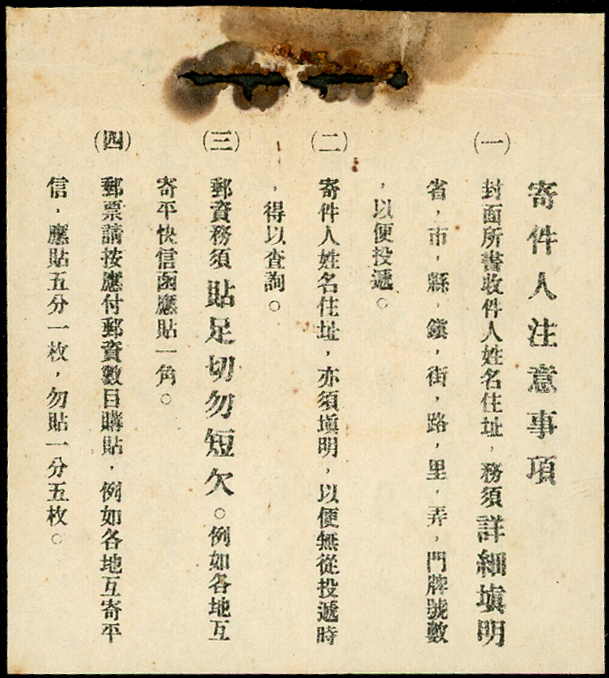 寄件人注意事項
(一) 封面所書收件人姓名住址，務須詳細塡明
省，市，縣，鎭，街，路，里，弄，門牌號數
，以便投遞。
(二) 寄件人姓名住址，亦須塡明，以便無從投遞時
，得以查詢。
(三) 郵資務須貼足切勿短欠。例如各地互
寄平快信函應貼一角。
(四) 郵票請按應付郵資數目購貼，例如各地互寄平
信，應貼五分一枚，勿貼一分五枚。